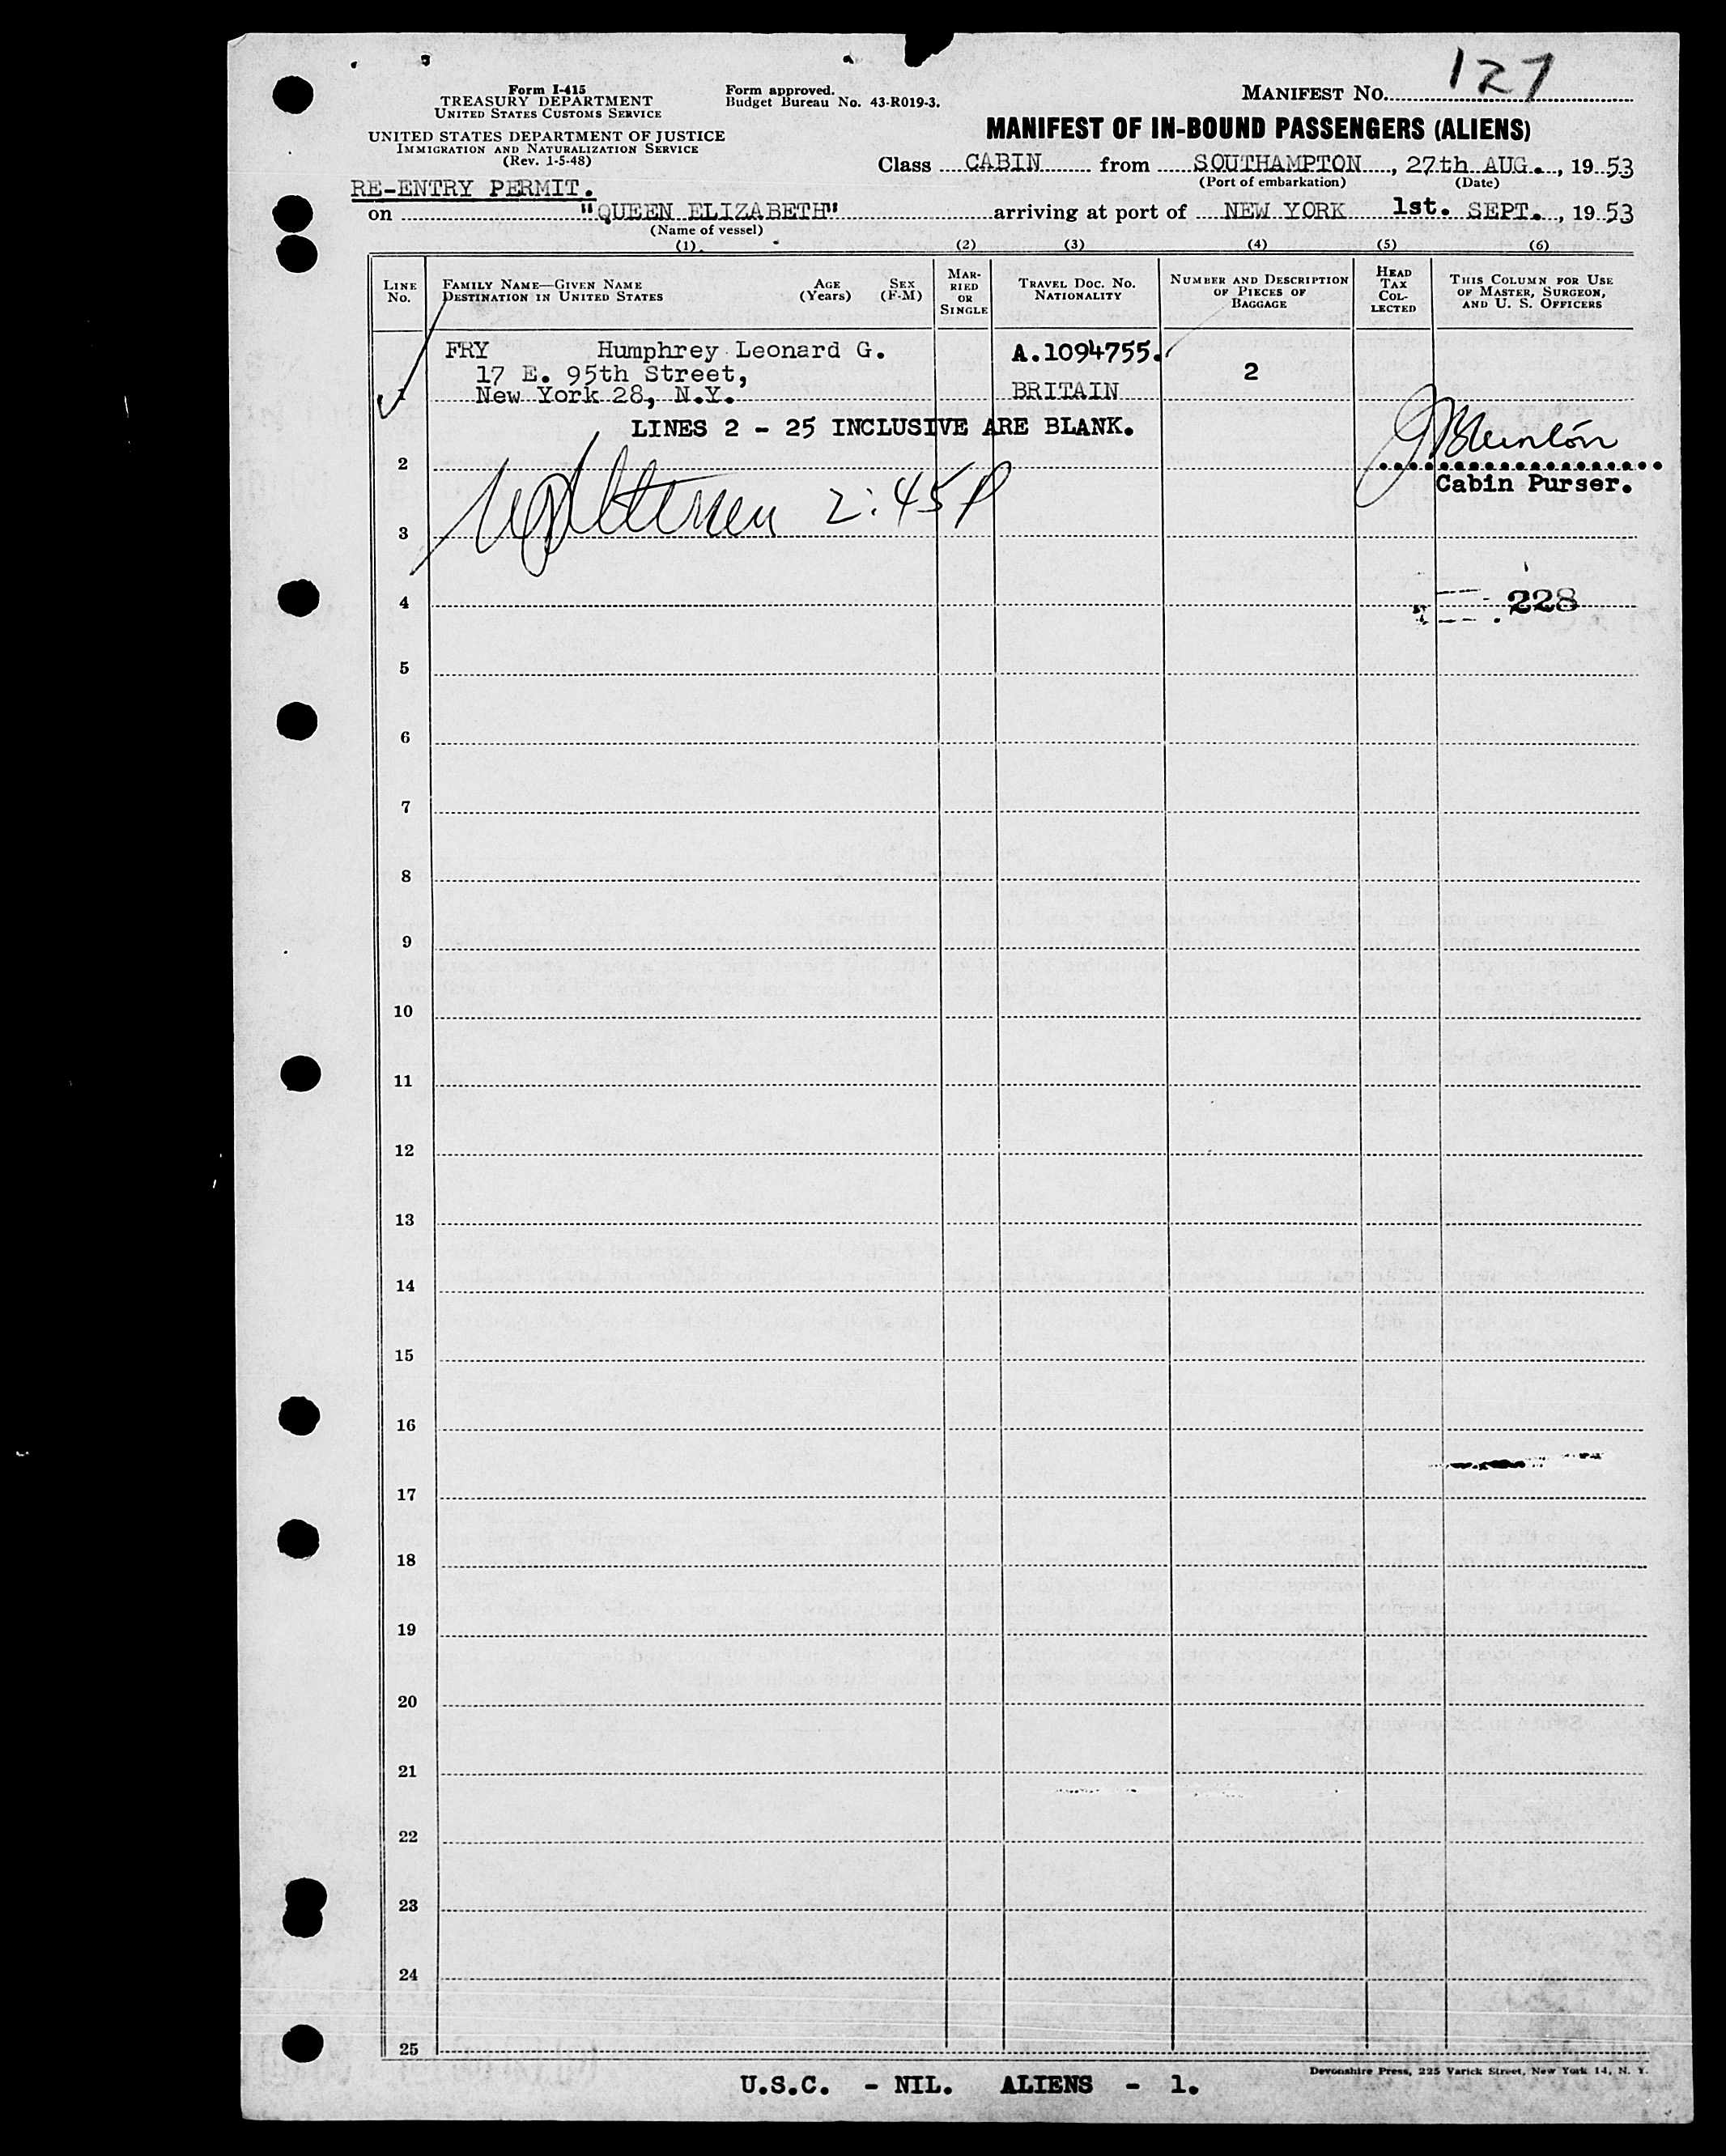 127
Form I-415
TREASURY DEPARTMENT
UNITED STATES CUSTOMS SERVICE
UNITED STATES DEPARTMENT OF JUSTICE
IMMIGRATION AND NATURALIZATION SERVICE
(Rev. 1-5-48)
Form approved.
Budget Bureau No. 43-R019-3.
MANIFEST NO.
MANIFEST OF IN-BOUND PASSENGERS (ALIENS)
Class CABIN from SOUTHAMPTON, 27th AUG., 19 53
(Port of embarkation) (Date)
RE-ENTRY PERMIT.
on "QUEEN ELIZABETH" arriving at port of NEW YORK 1st. SEPT., 19 53
(Name of vessel)
(1) (2) (3) (4) (5) (6)
LINE NO.
FAMILY NAME—GIVEN NAME
DESTINATION IN UNITED STATES
AGE (Years)
SEX (F-M)
MARRIED OR SINGLE
TRAVEL DOC. NO.
NATIONALITY
NUMBER AND DESCRIPTION
OF PIECES OF
BAGGAGE
HEAD
TAX
COL-
LECTED
THIS COLUMN FOR USE
OF MASTER, SURGEON,
AND U. S. OFFICERS
FRY Humphrey Leonard G. A.1094755.
17 E. 95th Street, 2
1 New York 28, N.Y. BRITAIN
LINES 2 - 25 INCLUSIVE ARE BLANK.
2
Cabin Purser.
2:45P
3
4 228
5
6
7
8
9
10
11
12
13
14
15
16
17
18
19
20
21
22
23
24
25
Devonshire Press, 225 Varick Street, New York 14, N. Y.
U.S.C. - NIL. ALIENS - 1.